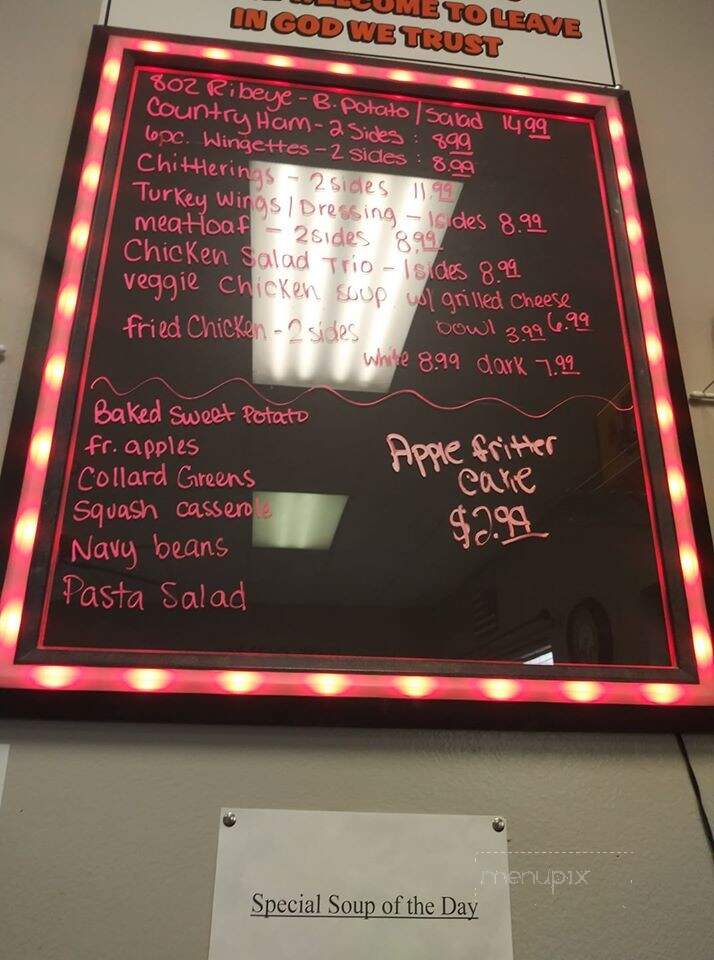 WELCOME TO LEAVE
IN GOD WE TRUST
8oz Ribeye - B. Potato / Salad 14.99
Country Ham - 2 Sides : 899
6pc. Wingettes - 2 sides : 8.99
Chittlerings - 2 sides 11.99
Turkey Wings / Dressing - 1sides 8.99
meatloaf - 2sides 8.99
Chicken Salad Trio - 1sides 8.99
veggie chicken soup w/ grilled cheese
bowl 3.99 6.99
fried Chicken - 2 sides
white 8.99 dark 7.99
Baked Sweet Potato
fr. apples
Collard Greens
Squash casserole
Navy beans
Pasta Salad
Apple fritter
cake
$2.99
Special Soup of the Day
menupix